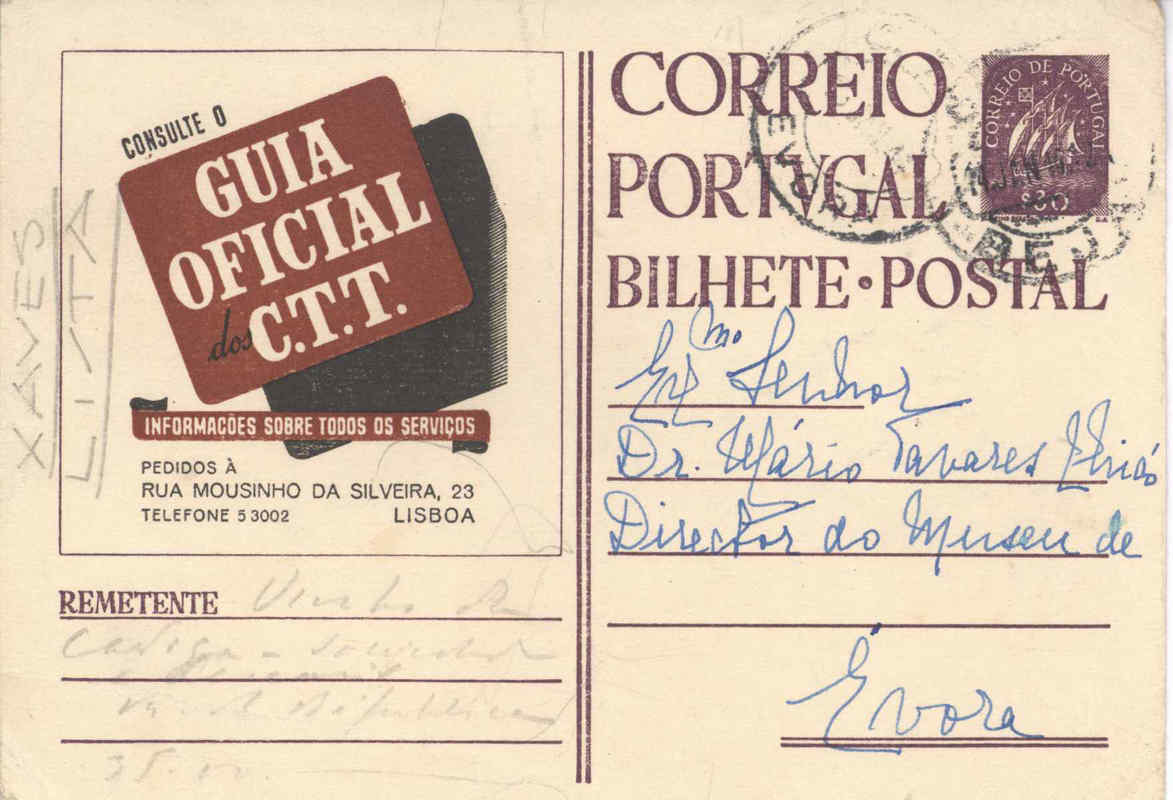 CONSULTE O
GUIA
OFICIAL
dos C.T.T.
INFORMAÇÕES SOBRE TODOS OS SERVIÇOS
PEDIDOS À
RUA MOUSINHO DA SILVEIRA, 23
TELEFONE 53002 LISBOA
XAVES
LISTA
REMETENTE
CORREIO
PORTVGAL
BILHETE·POSTAL
CORREIO DE PORTUGAL
$30
EVORA
BEJA
Exmo Senhor
Dr. Mário Tavares
Director do Museu de
Évora